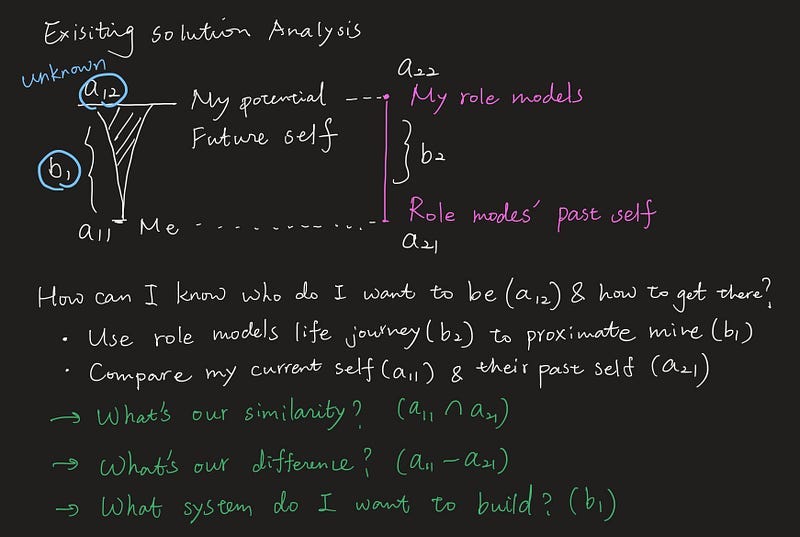 Exisiting solution Analysis
unknown
a12 My potential Future self
a22
My role models
b1
b2
a11 Me
Role modes' past self
a21
How can I know who do I want to be (a12) & how to get there?
• Use role models life journey (b2) to proximate mine (b1)
• Compare my current self (a11) & their past self (a21)
→ What's our similarity? (a11 ∩ a21)
→ What's our difference? (a11 − a21)
→ What system do I want to build? (b1)